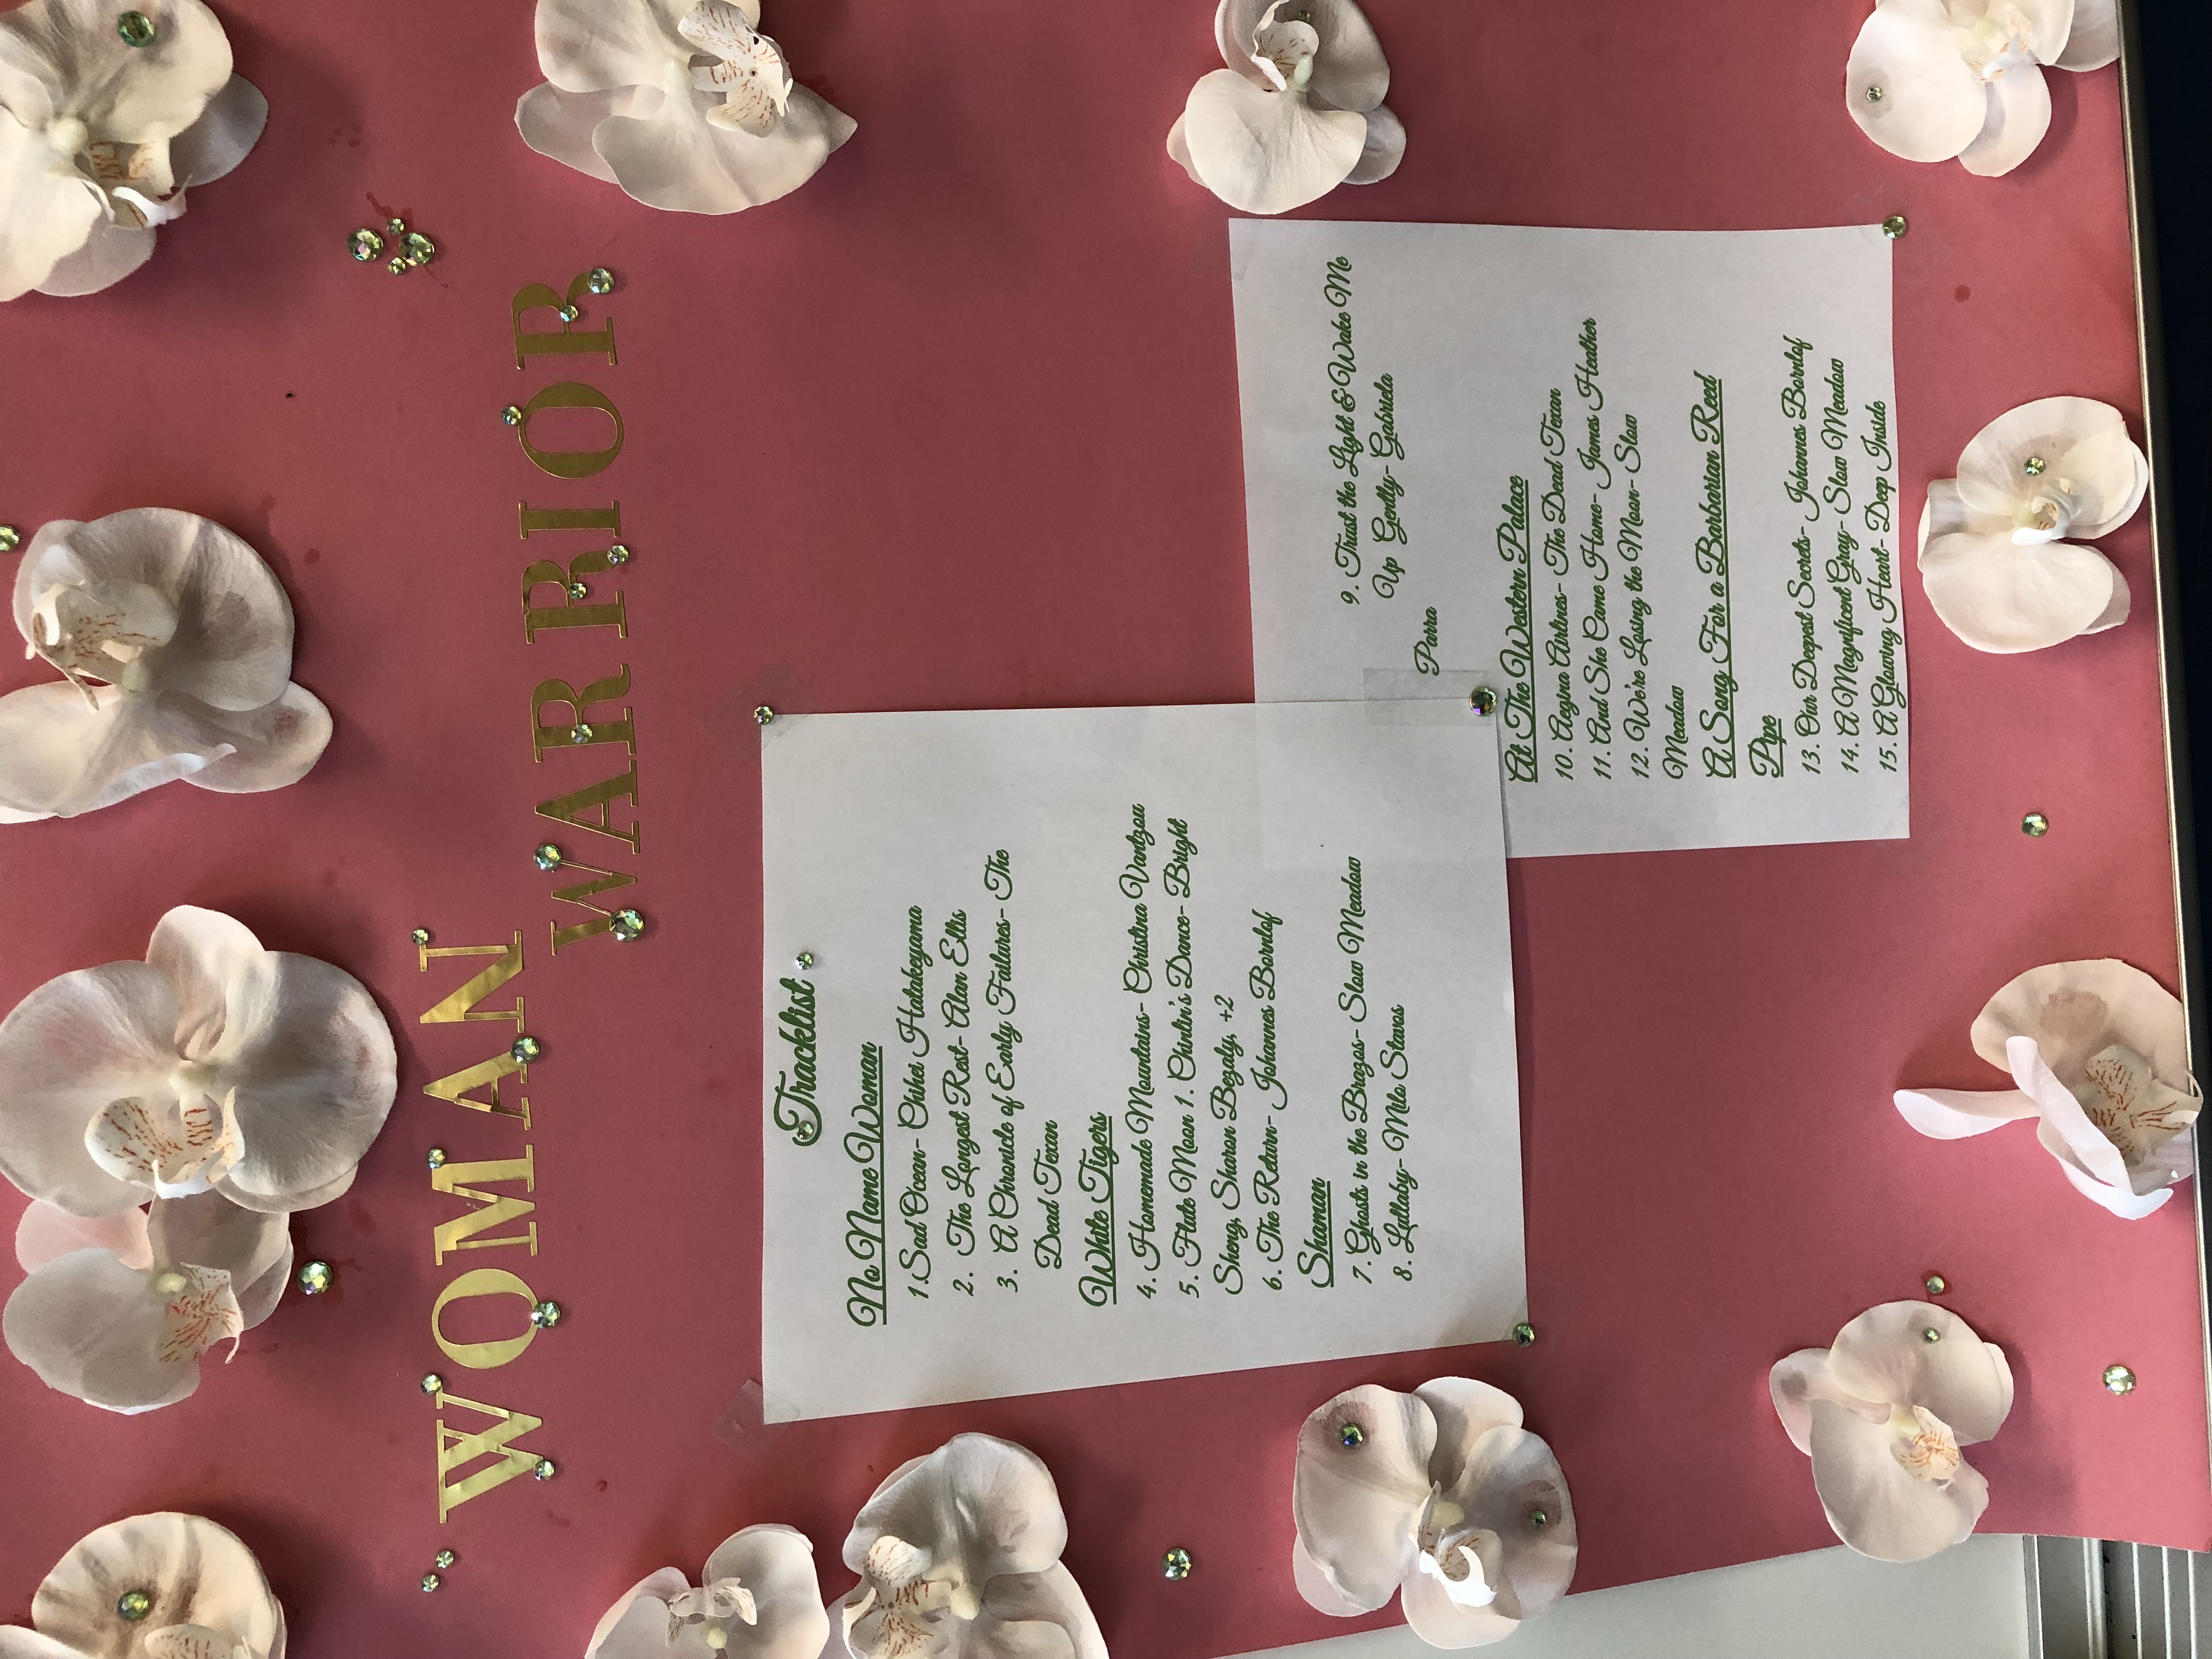 WOMAN
WARRIOR
Tracklist
No Name Woman
1. Sad Ocean- Chihei Hatakeyama
2. The Longest Rest- Alan Ellis
3. A Chronicle of Early Failures- The
Dead Texan
White Tigers
4. Homemade Mountains- Christina Vantzou
5. Flute Moon 1. Chinlin's Dance- Bright
Sheng, Sharon Bezaly, +2
6. The Return- Johannes Bornlof
Shaman
7. Ghosts in the Brazos- Slow Meadow
8. Lullaby- Milo Stavos
9. Trust the Light & Wake Me
Up Gently- Gabriela
Parra
At The Western Palace
10. Aegina Airlines- The Dead Texan
11. And She Came Home- James Heather
12. We're Losing the Moon- Slow
Meadow
A Song For a Barbarian Reed
Pipe
13. Our Deepest Secrets- Johannes Bornlof
14. A Magnificent Gray- Slow Meadow
15. A Glowing Heart- Deep Inside